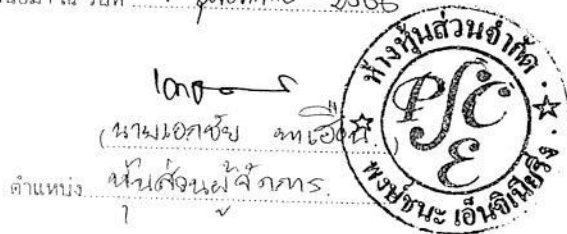 วันที่ 2566
(นายเอกชัย
ตำแหน่ง หุ้นส่วนผู้จัดการ.
ห้างหุ้นส่วนจำกัด
PSCE
พงษ์ชนะ เอ็นจิเนียริ่ง